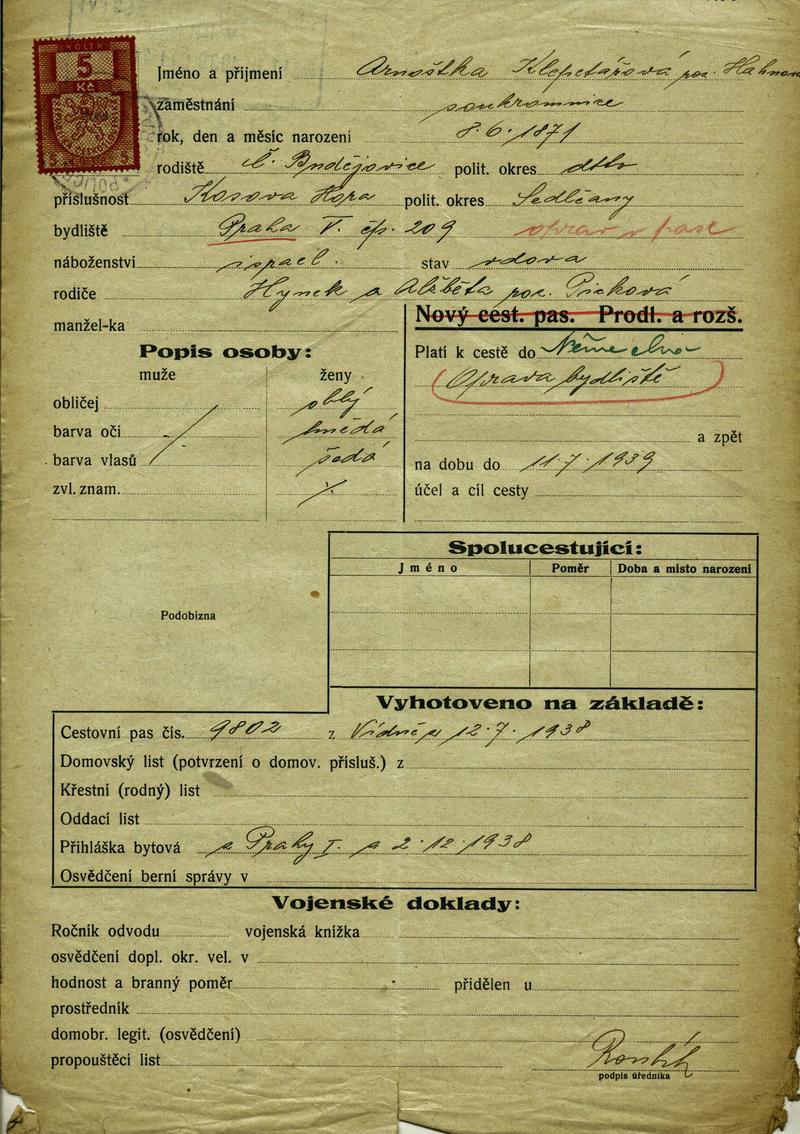 KOLEK
5
Kč
Jméno a příjmení Arnoštka Klepetářová roz. Hahnov
zaměstnání soukromnice
rok, den a měsíc narození 8.6.1871
rodiště Č. Budějovice polit. okres dtto
příslušnost Kosova Hora polit. okres Sedlčany
bydliště Praha V. čp. 209 oprav v pase
náboženství israel. stav vdova
rodiče Hynek a Alžběta roz.
manžel-ka
Nový cest. pas. Prodl. a rozš.
Popis osoby:
Platí k cestě do Německa
muže ženy
Oprava bydliště
obličej oblý
barva očí hnědá
a zpět
barva vlasů šedá
na dobu do 11.7.1939
zvl. znam.
účel a cíl cesty
Spolucestující:
Jméno Poměr Doba a místo narození
Podobizna
Vyhotoveno na základě:
Cestovní pas čís. 9802 z Vídně z 12.7.1938
Domovský list (potvrzení o domov. přísluš.) z
Křestní (rodný) list
Oddací list
Přihláška bytová z Prahy I. z 2.12.1938
Osvědčení berní správy v
Vojenské doklady:
Ročník odvodu vojenská knížka
osvědčení dopl. okr. vel. v
hodnost a branný poměr přidělen u
prostředník
domobr. legit. (osvědčení)
propouštěcí list
podpis úředníka